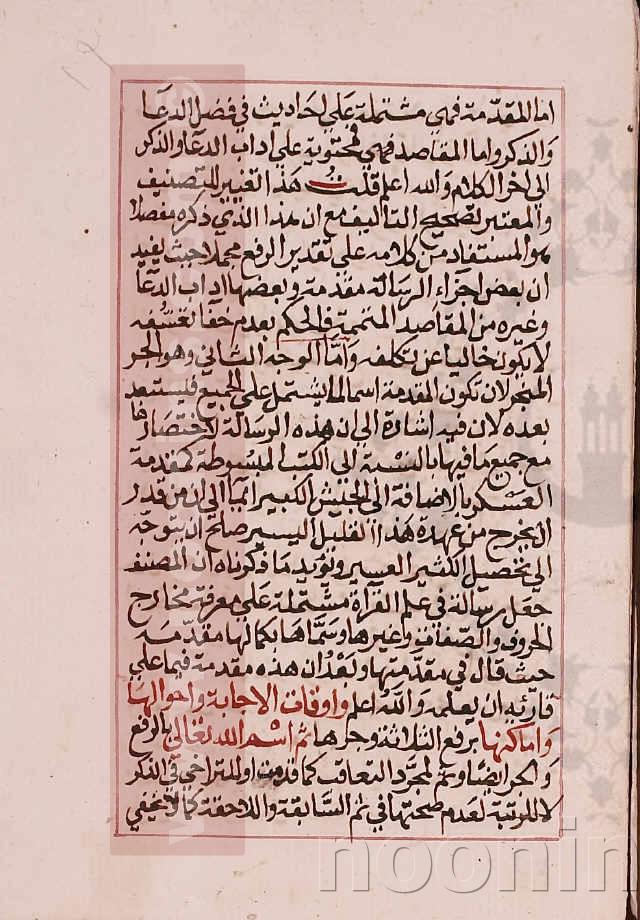 اما المقدمة فهي مشتملة على احاديث في فضل الدعا
والذكر واما المقاصد فهي محتوية على اداب الدعا والذكر
الى اخر الكلام والله اعلم قلت هذا التغيير للتصنيف
والمعتبر لصحيح التاليف مع ان هذا الذي ذكره مفصلا
هو المستفاد من كلامه على تقدير الرفع مجملا حيث يفيد
ان بعض اجزاء الرسالة مقدمة وبعضها اداب الدعا
وغيره من المقاصد المتممة فالحكم بعدم خفا تعسفه
لا يكون خاليا عن تكلفه واما الوجه الثاني وهو الجر
المنجر لان تكون المقدمة اسما لما يشتمل على الجميع فليستعد
بعده لان فيه اشارة الى ان هذه الرسالة لاختصارها
مع جميع ما فيها بالنسبة الى الكتب المبسوطة كمقدمة
العسكر بالاضافة الى الجيش الكبير ايما الى ان من قدر
ان يخرج من عهدة هذا القليل اليسير صالح ان يتوجه
الى تحصيل الكثير العسير ونؤيد ما ذكرناه ان المصنف
جعل رسالة في علم القرآة مشتملة على معرفة مخارج
الحروف والصفات وغيرها وسماها بكمالها مقدمة
حيث قال في مقدمتها وبعد ان هذه مقدمة فيما على
قارئه ان يعلمه والله اعلم واوقات الاجابة واحوالها
واماكنها برفع الثلاثة وجرها ثم اسم الله تعالى بالرفع
والجر ايضا وثم لمجرد التعاقب كما قدمت او للتراخي في الذكر
لا للمرتبة لعدم صحتها في ثم السابقة واللاحقة كما لا يخفى
noonin